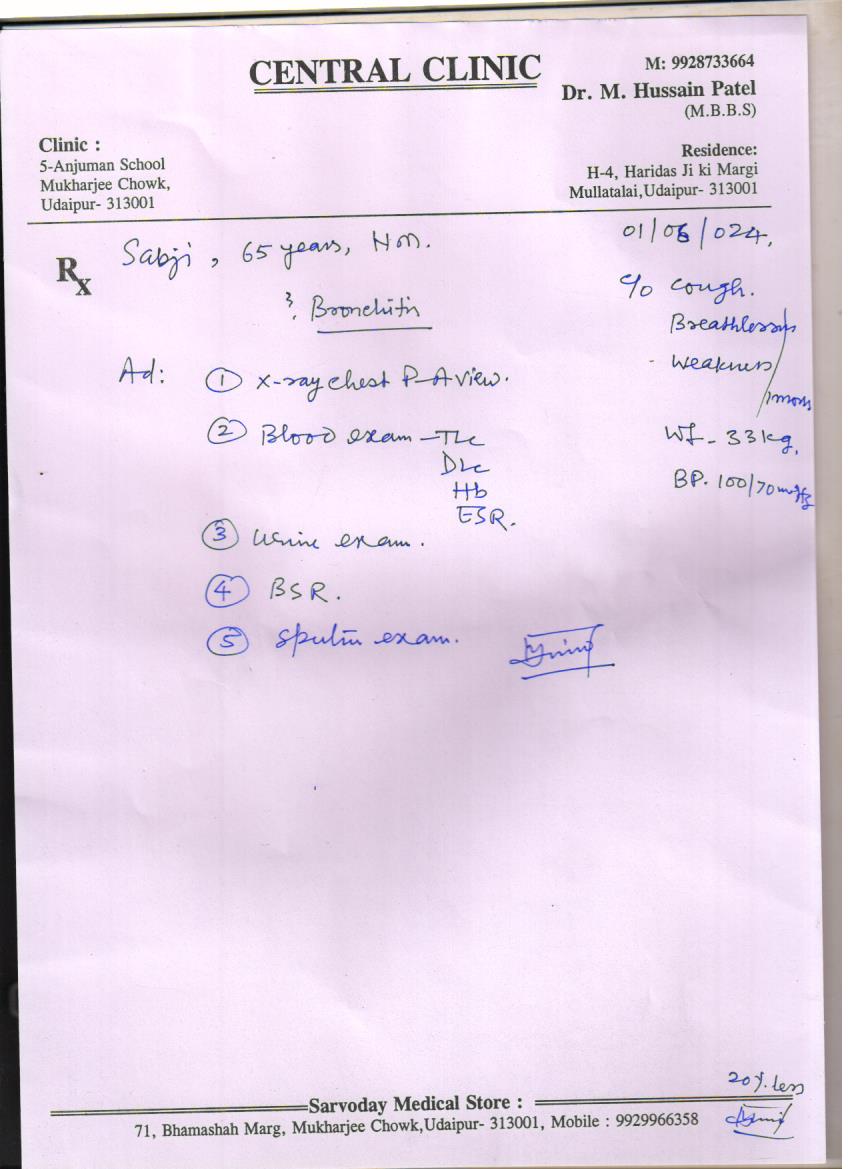 CENTRAL CLINIC
M: 9928733664
Dr. M. Hussain Patel
(M.B.B.S)
Clinic :
5-Anjuman School
Mukharjee Chowk,
Udaipur- 313001
Residence:
H-4, Haridas Ji ki Margi
Mullatalai,Udaipur- 313001
Rx
Sabji, 65 years, Hm.
01/06/024,
Bronchitis
c/o cough.
Breathlessness
Weakness
Ad: ① X-ray chest P-A view.
② Blood exam - TLC
DLC
Hb
ESR.
Wt - 33 kg,
BP. 100/70 mmHg
③ Urine exam.
④ BSR.
⑤ Sputum exam.
20% less
Sarvoday Medical Store :
71, Bhamashah Marg, Mukharjee Chowk,Udaipur- 313001, Mobile : 9929966358